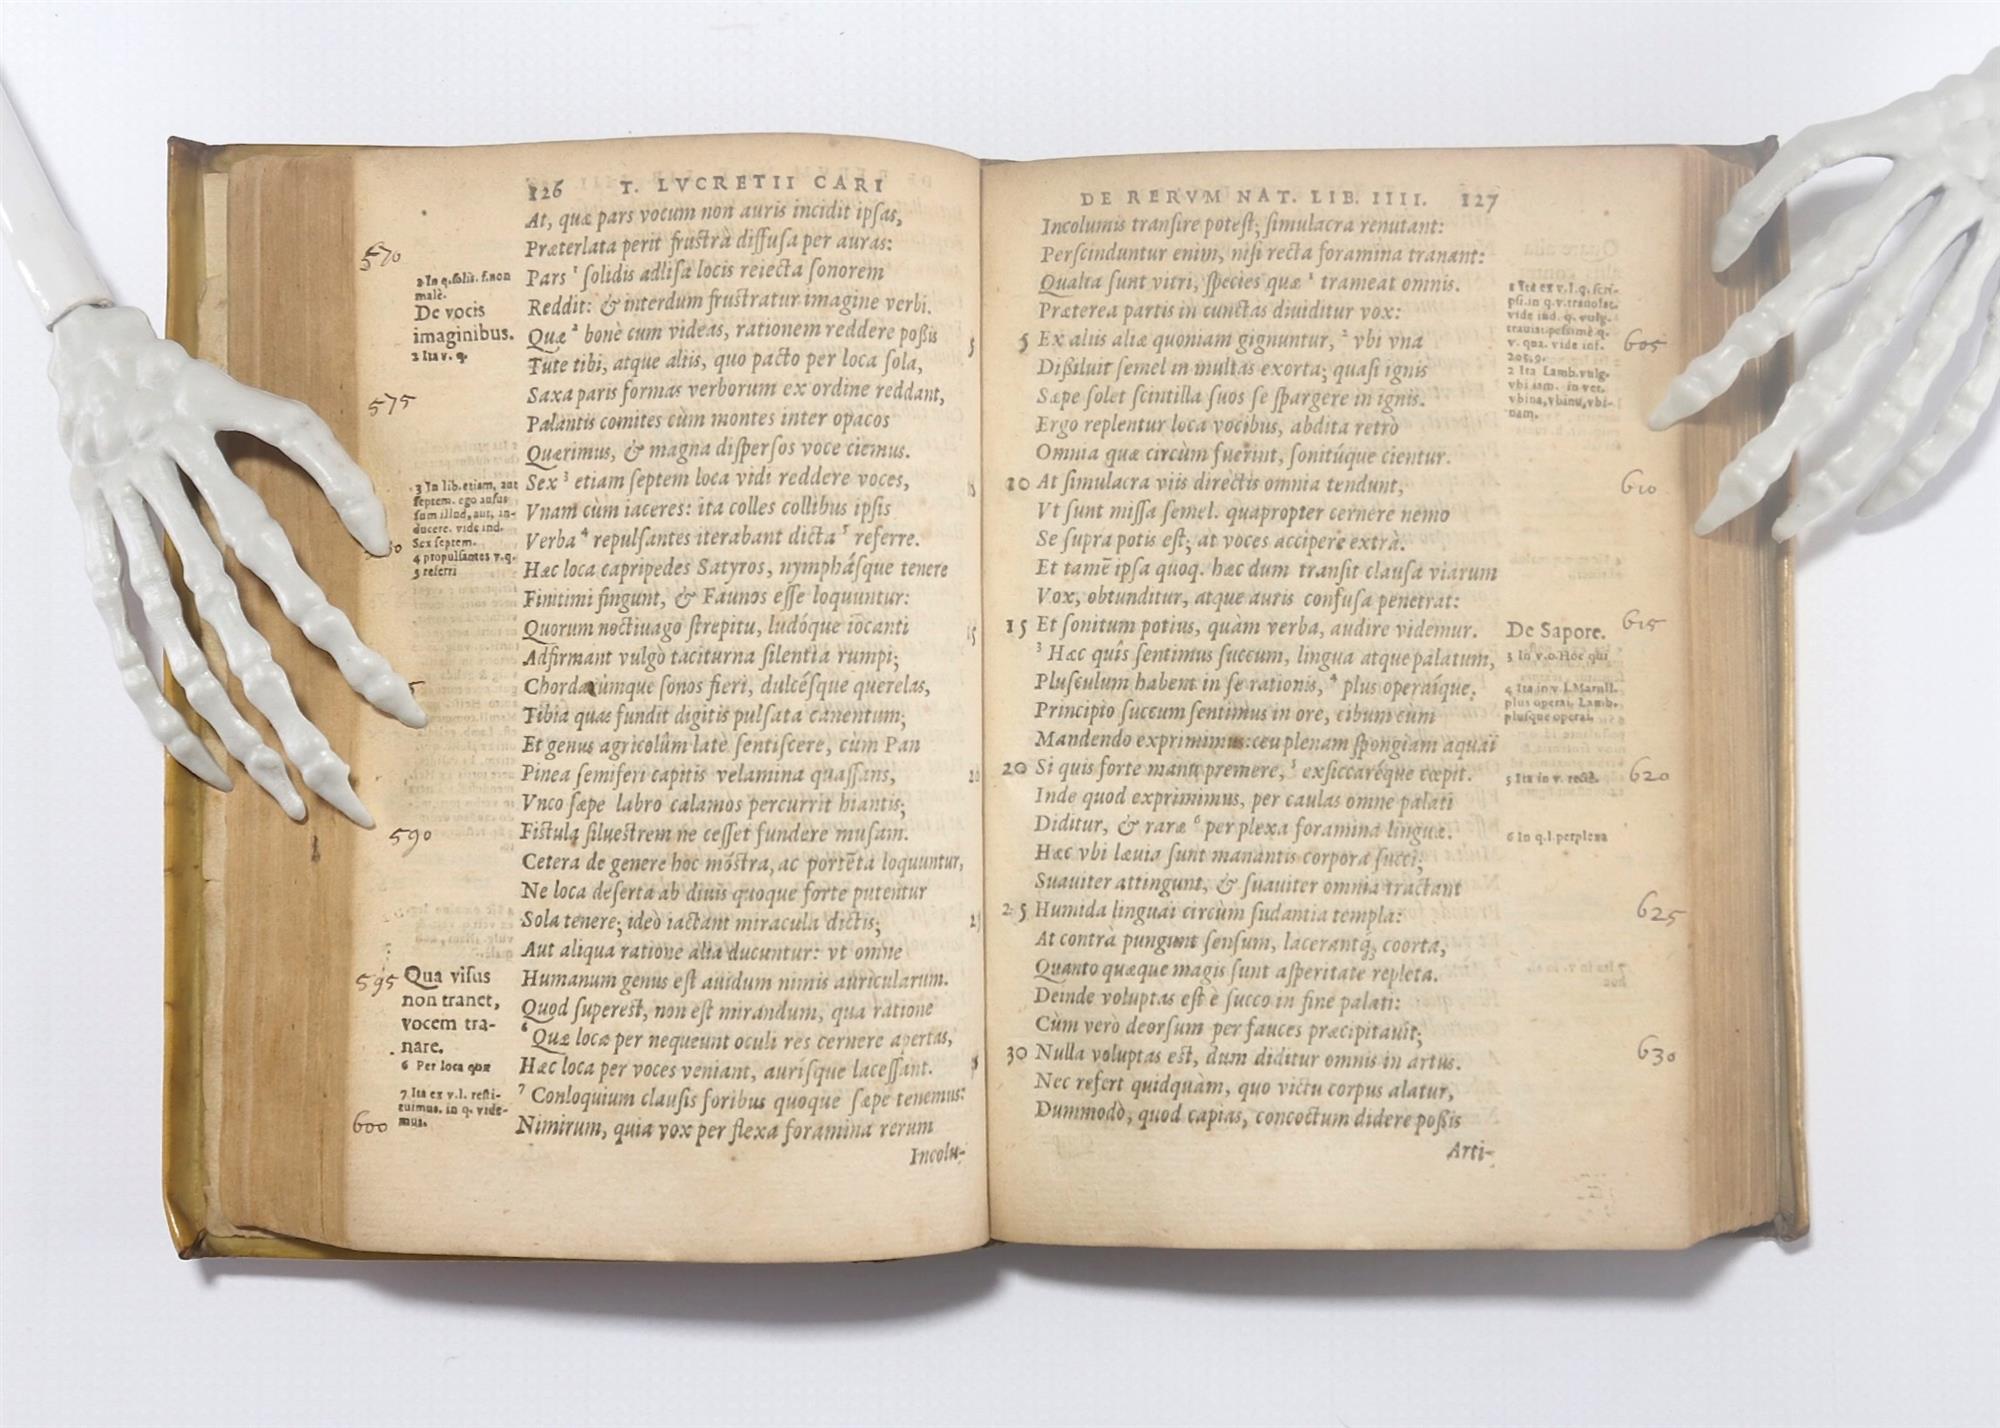 126 T. LVCRETII CARI
At, quæ pars vocum non auris incidit ipſas,
570
Præterlata perit fruſtrà diffuſa per auras:
1 In q. ſolis. f. non
malè.
Pars ¹ ſolidis adliſa locis reiecta ſonorem
De vocis
imaginibus.
Reddit: & interdum fruſtratur imagine verbi.
Quæ ² bonè cum videas, rationem reddere poßis
5
2 Ita v. q.
Tute tibi, atque aliis, quo pacto per loca ſola,
Saxa paris formas verborum ex ordine reddant,
575
Palantis comites cùm montes inter opacos
Quærimus, & magna diſperſos voce ciemus.
3 In lib. etiam, aut
ſeptem. ego auſus
ſum illud, aut, in-
ducere. vide ind.
Sex ſeptem.
4 propulſantes v. q.
5 referri
Sex ³ etiam ſeptem loca vidi reddere voces,
Vnam cùm iaceres: ita colles collibus ipſis
Verba ⁴ repulſantes iterabant dicta ⁵ referre.
Hæc loca capripedes Satyros, nymphásque tenere
Finitimi fingunt, & Faunos eſſe loquuntur:
Quorum noctiuago ſtrepitu, ludóque iocanti
15
Adfirmant vulgò taciturna ſilentia rumpi;
Chordarúmque ſonos fieri, dulcésque querelas,
Tibia quas fundit digitis pulſata canentum;
Et genus agricolûm latè ſentiſcere, cùm Pan
Pinea ſemiferi capitis velamina quaſſans,
20
Vnco ſæpe labro calamos percurrit hiantis;
590
Fiſtula ſilueſtrem ne ceſſet fundere muſam.
Cetera de genere hoc mõſtra, ac portẽta loquuntur,
Ne loca deſerta ab diuis quoque forte putentur
Sola tenere; ideò iactant miracula dictis;
Aut aliqua ratione alia ducuntur: vt omne
595
Qua viſus
non tranet,
vocem tra-
nare.
Humanum genus eſt auidum nimis auricularum.
Quod ſupereſt, non eſt mirandum, qua ratione
⁶ Quæ loca per nequeunt oculi res cernere apertas,
6 Per loca quæ
Hæc loca per voces veniant, auriſque laceſſant.
7 Ita ex v. l. reſti-
tuimus. in q. vide-
mus.
⁷ Conloquium clauſis foribus quoque ſæpe tenemus:
600
Nimirum, quia vox per flexa foramina rerum
Incolu-
DE RERVM NAT. LIB. IIII. 127
Incolumis tranſire poteſt; ſimulacra renutant:
Perſcinduntur enim, niſi recta foramina tranant:
Qualia ſunt vitri, ſpecies quæ ¹ trameat omnis.
Præterea partis in cunctas diuiditur vox:
5 Ex aliis aliæ quoniam gignuntur, ² vbi vna
605
Dißiluit ſemel in multas exorta; quaſi ignis
Sæpe ſolet ſcintilla ſuos ſe ſpargere in ignis.
1 Ita ex v. l. q. ſcri-
pſi. in q. v. tranſiat.
vide ind. q. vulg.
trauiat. peſſimè q.
v. qua. vide inf.
205. 9.
2 Ita Lamb. vulg.
vbi iam. in vet.
vbina, vbinu, vbi-
nam.
Ergo replentur loca vocibus, abdita retrò
Omnia quæ circùm fuerint, ſonitúque cientur.
10 At ſimulacra viis directis omnia tendunt,
610
Vt ſunt miſſa ſemel. quapropter cernere nemo
Se ſupra potis eſt; at voces accipere extrà.
Et tamẽ ipſa quoq. hæc dum tranſit clauſa viarum
Vox, obtunditur, atque auris confuſa penetrat:
15 Et ſonitum potius, quàm verba, audire videmur.
De Sapore.
615
³ Hæc quîs ſentimus ſuccum, lingua atque palatum,
3 In v. o. Hoc qui
Pluſculum habent in ſe rationis, ⁴ plus operaíque.
4 Ita in v. l. Marull.
plus operai. Lamb.
pluſque operai.
Principio ſuccum ſentimus in ore, cibum cùm
Mandendo exprimimus: ceu plenam ſpongiam aquaï
20 Si quis forte manu premere, ⁵ exſiccaréque cœpit.
5 Ita in v. rectè.
620
Inde quod exprimimus, per caulas omne palati
Diditur, & raræ ⁶ per plexa foramina linguæ.
6 In q. l. perplexa
Hæc vbi læuia ſunt manantis corpora ſucci;
Suauiter attingunt, & ſuauiter omnia tractant
25 Humida linguai circùm ſudantia templa:
625
At contrà pungunt ſenſum, lacerantq́; coorta,
Quanto quæque magis ſunt aſperitate repleta.
Deinde voluptas eſt è ſucco in fine palati:
Cùm verò deorſum per fauces præcipitauit;
30 Nulla voluptas eſt, dum diditur omnis in artus.
630
Nec refert quidquàm, quo victu corpus alatur,
Dummodò, quod capias, concoctum didere poßis
Arti-